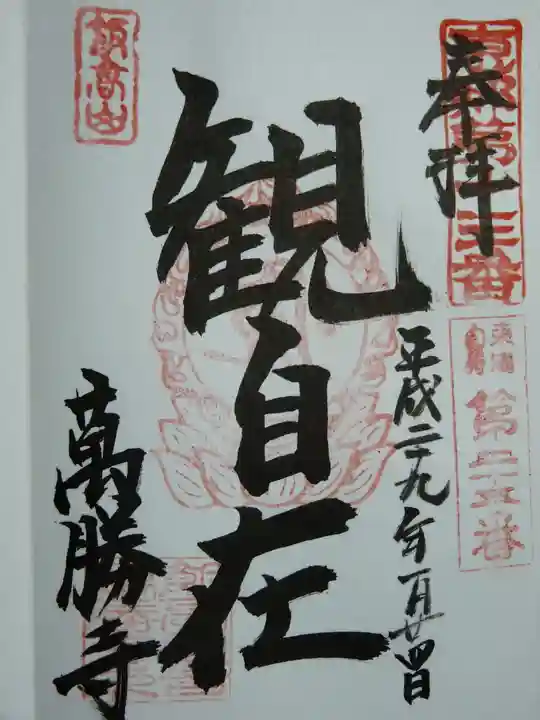 奉拝
第二十五番
平成二十九年一月廿四日
観自在
飯高山
萬勝寺